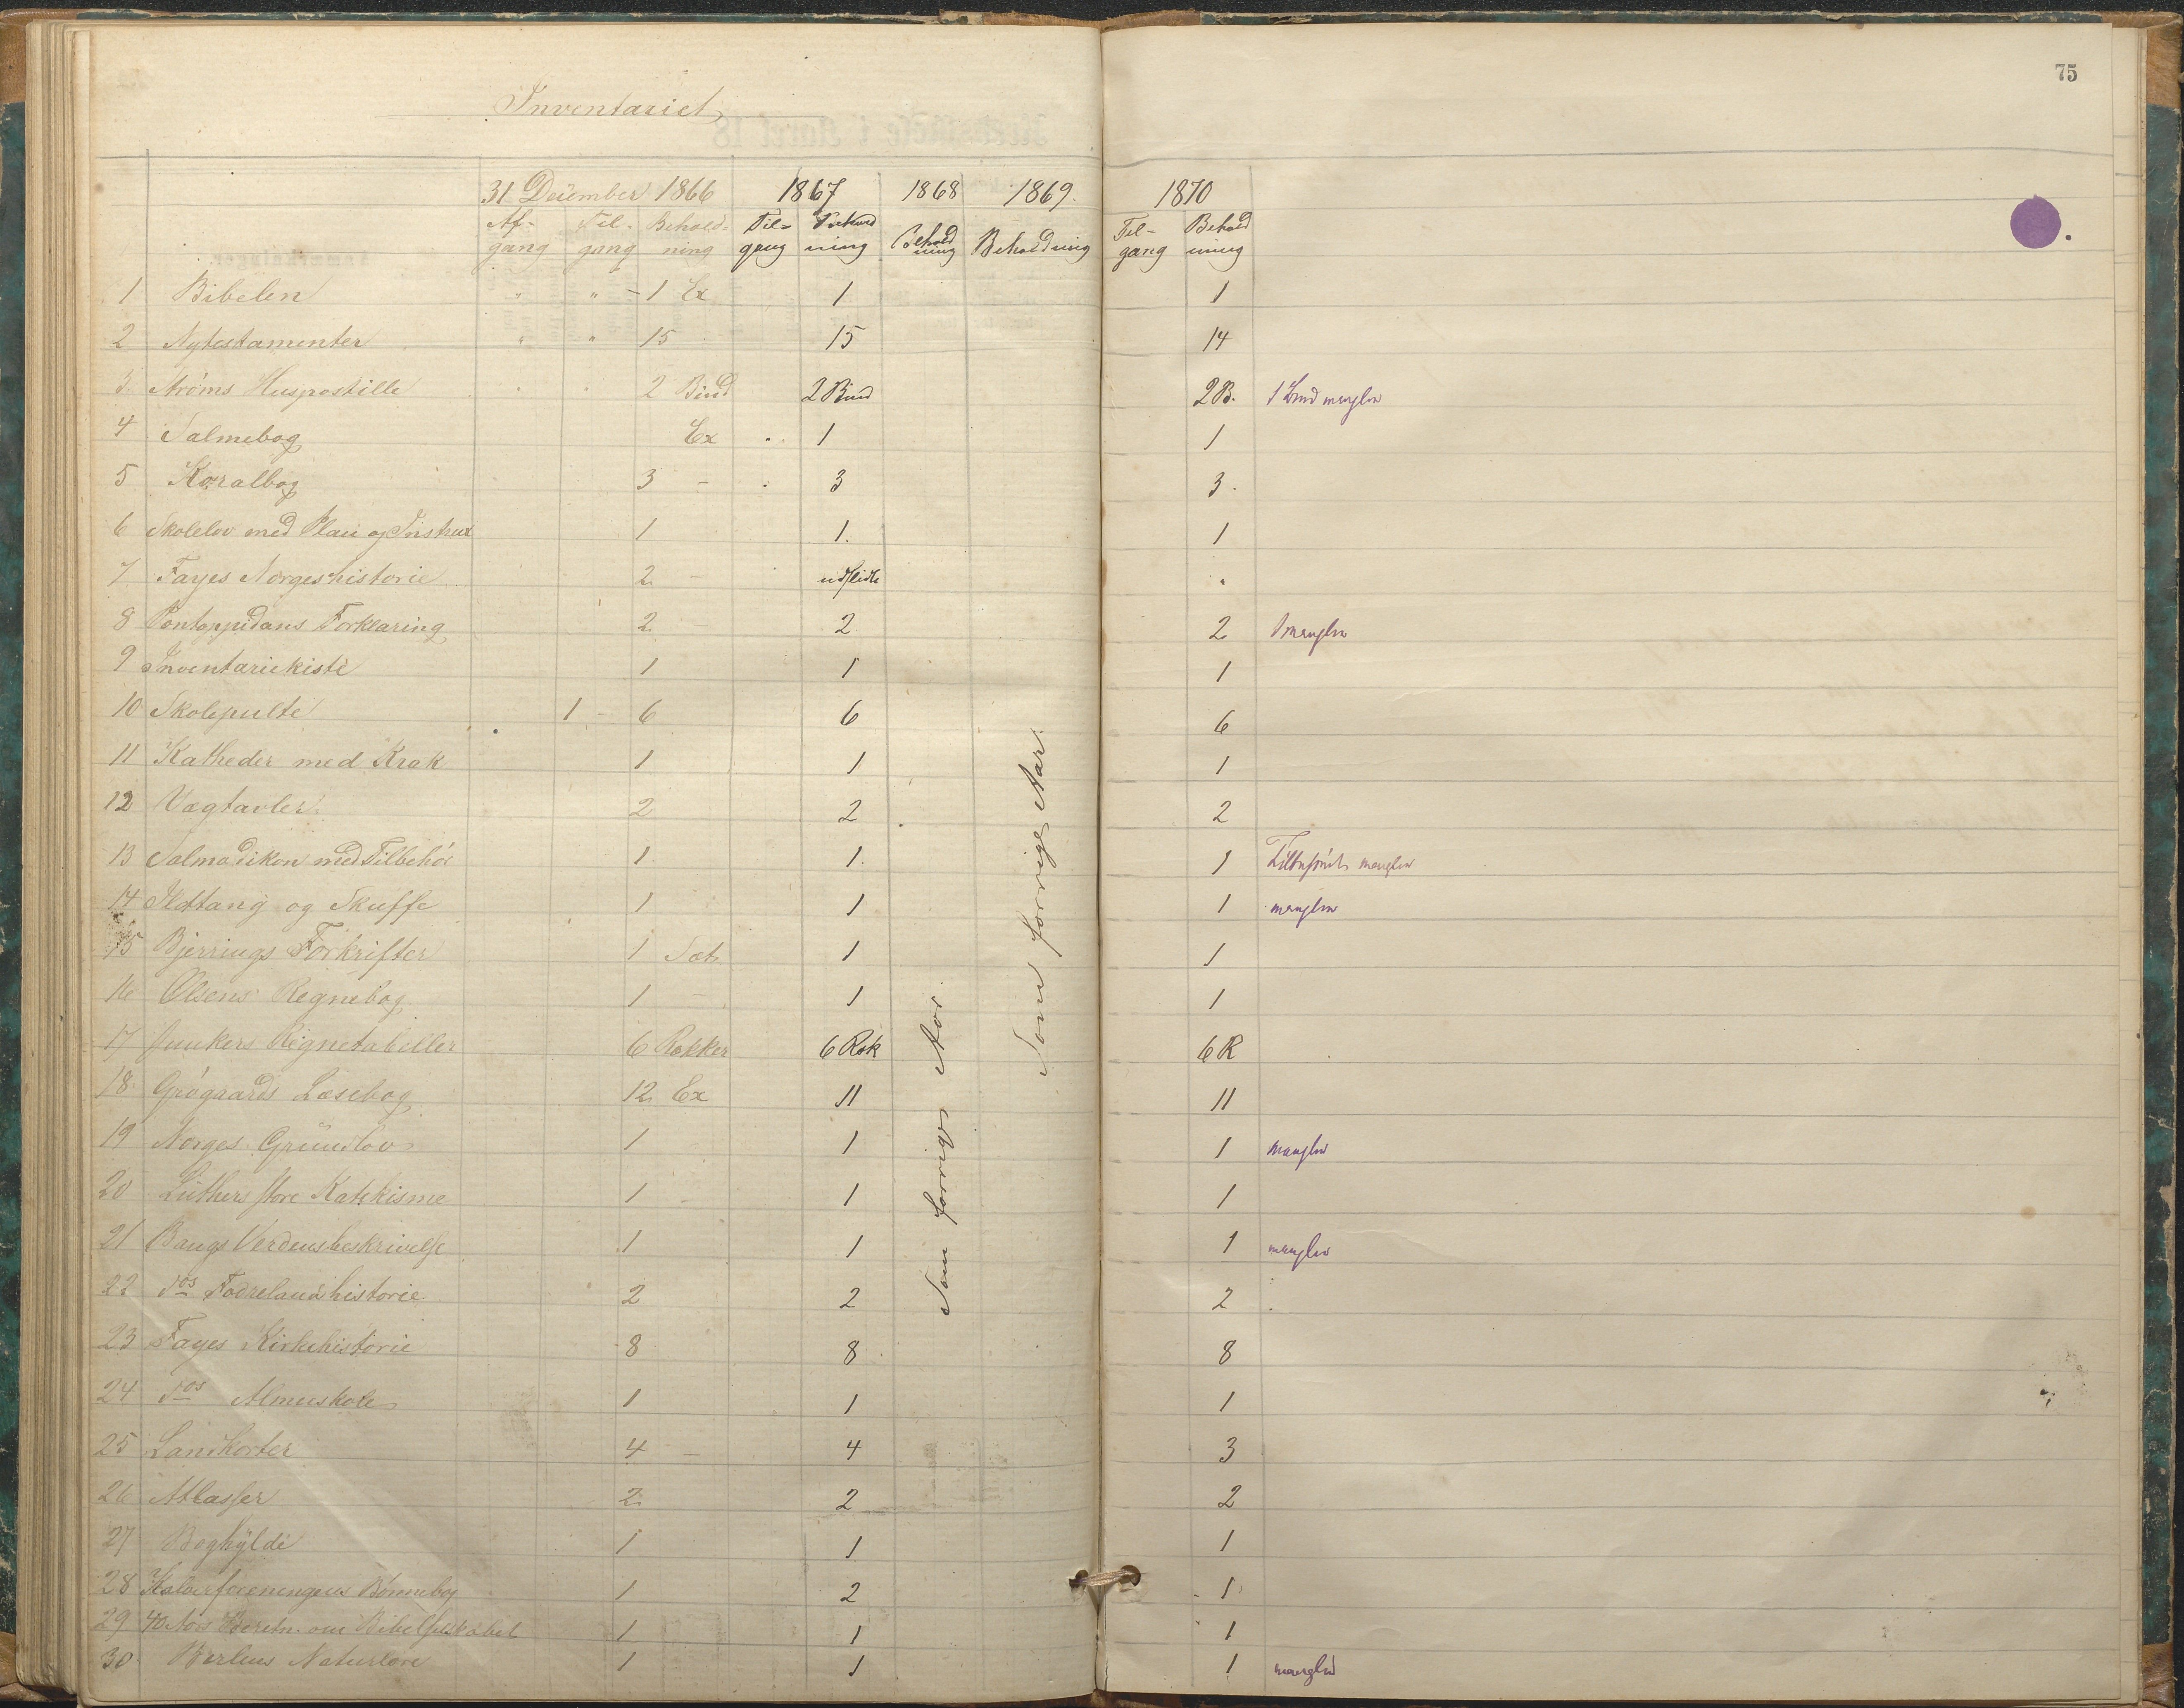 75
Inventariet
31 December 1866 1867 1868 1869. 1870
Af-gang Til-gang Behold-ning Til-gang Behold ning Behold ning Beholdning Til-gang Behold ning
1 Bibelen " " - 1 Ex 1 1
2 Nytestamenter " " 15 15 14
3 Strøms Huspostille " " 2 Bind 2 Bind 2 B. 1 Bind mangler
4 Salmebog Ex 1 1
5 Koralbog 3 - 3 3.
6 Skolelov med Plan og Instrux 1 1. 1
7 Fayes Norgeshistorie 2 - udslidte "
8 Pontoppidans Forklaring 2 2 2 1 mangler
9 Inventariekiste 1 1 1
10 Skolepulte 1 - 6 6 6
11 Katheder med Krak 1 1 1
12 Vægtavler 2 2 2
13 Salmodikon med Tilbehör 1 1. 1 Tilbehöret mangler
14 Ildtang og Skuffe 1 1 1 mangler
15 Bjerrings Forkrifter 1 Sæt 1 1
16 Olsens Regnebog 1 - 1 1
17 Junkers Regnetabeller 6 Rækker 6 Ræk 6 R
18 Grögaards Læsebog 12 Ex 11 11
19 Norges Grundlov 1 1 1 mangler
20 Luthers store Katekisme 1 - 1 1
21 Bangs Verdensbeskrivelse 1 1 1 mangler
22 dos Fædrelandshistorie 2 2 2
23 Fayes Kirkehistorie 8 8 8
24 dos Almueskole 1 1 1
25 Landkorter 4 - 4 3
26 Atlasser 2 2 2
27 Boghylde 1 1 1
28 Kalverforeningens Bønnebog 1 2 1
29 40 Aars Beretn. om Bibelselskabet 1 1 1
30. Berlins Naturlære 1 1 1 mangler
Som forrige Aar.
Som forrige Aar.